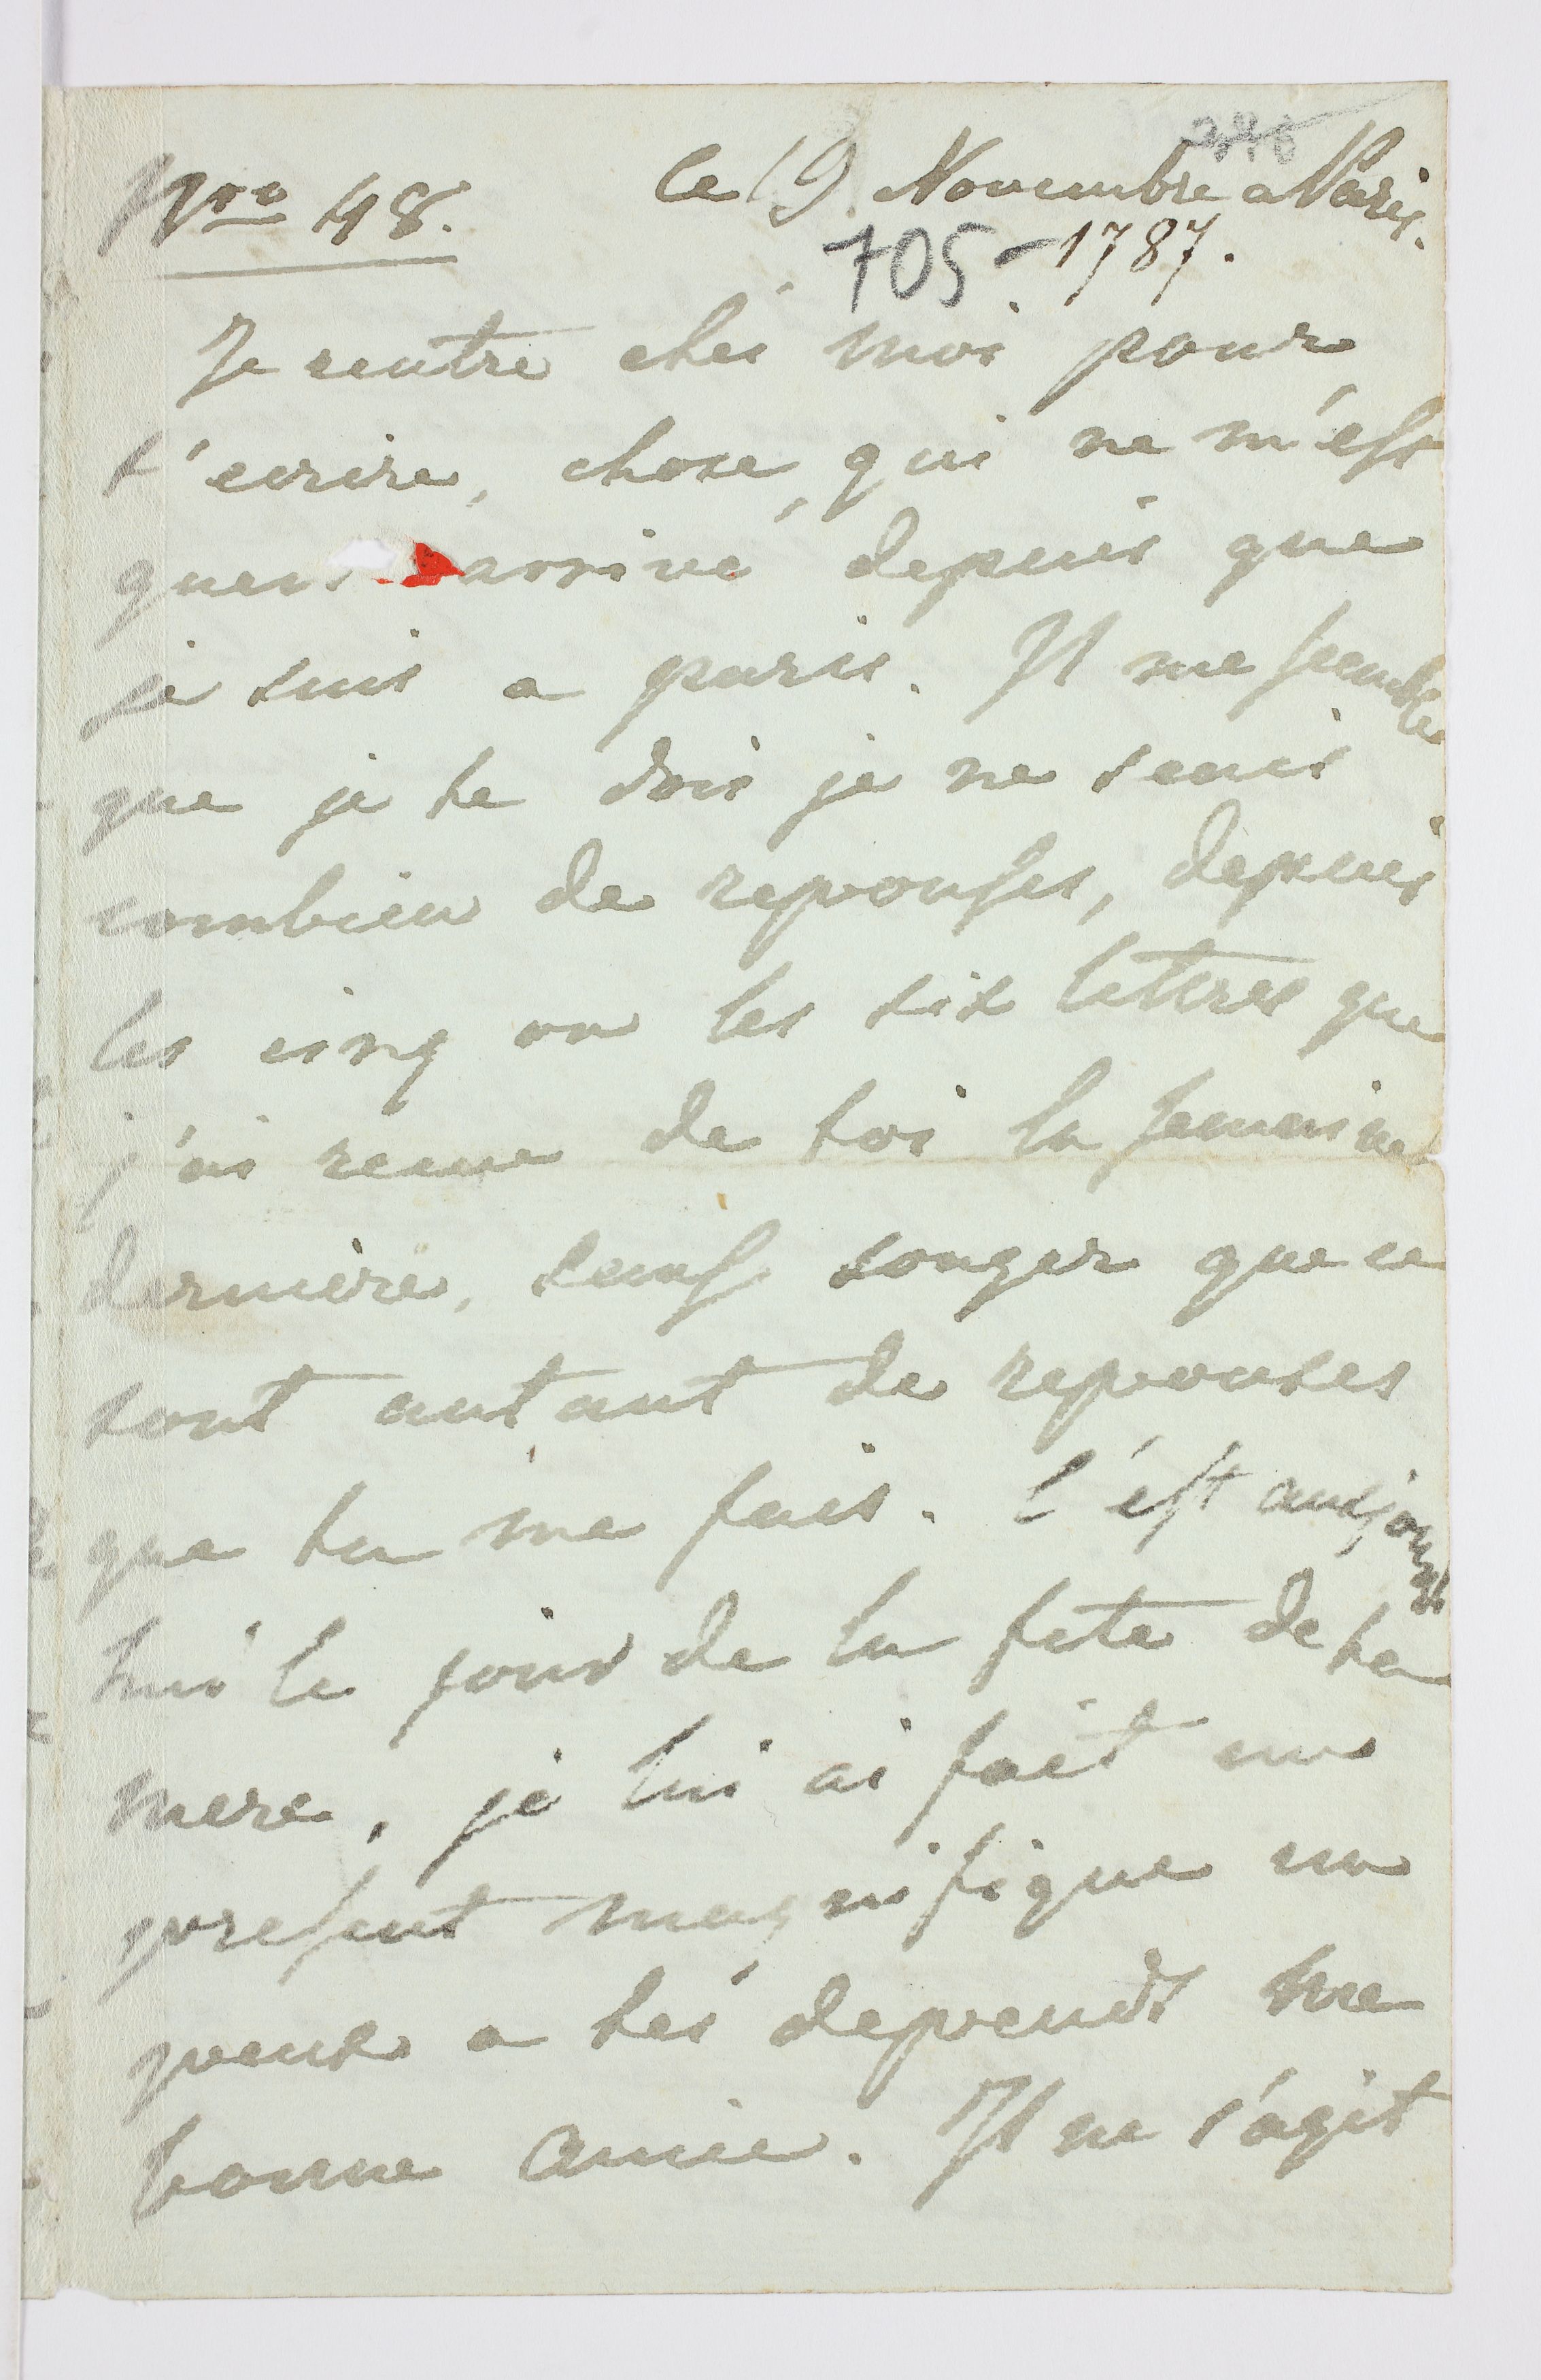 Nro 48. Ce 19. Novembre a Paris.
705 - 1787.
Je rentre ches moi pour
t'ecrire, chose, qui ne m'est
arrivé depuis que
je suis a paris. Il me semble
que je te dois je ne sais
combien de reponses, depuis
les cinq ou les six lettres que
j'ai recue de toi la semaine
derniere, sans songer que ce
sont autant de reponses
que tu me fais. C'est aujourd
hui le jour de la fete de ta
mere, je lui ai fait un
present magnifique un
a tes depends ma
bonne amie. Il ne s'agit